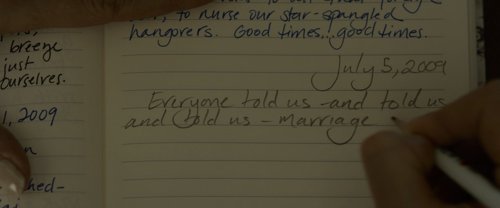 breeze
just
ourselves.
1, 2009
to nurse our star-spangled
hangovers. Good times...good times.
July 5, 2009
Everyone told us - and told us
and told us - marriage